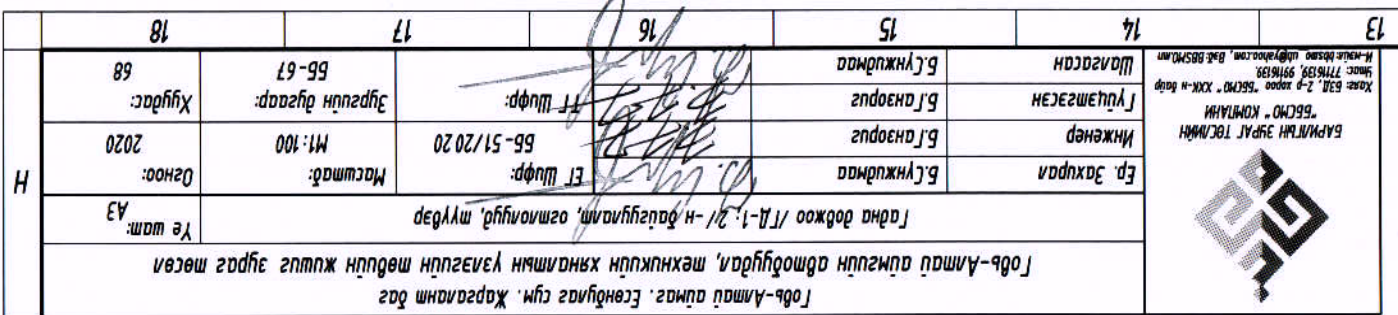 Говь-Алтай аймаг. Есөнбулаг сум. Жаргалант баг
Говь-Алтай аймгийн автобудал, техникийн хяналтын үзлэгийн төвийн жишиг зураг төсөл
Гадна довжоо /ГД-1; 2/-н байгуулалт, огтлолууд, түүвэр
Үе шат:
А3
БАРИЛГЫН ЗУРАГ ТӨСЛИЙН
"ББСМО" КОМПАНИ
Хаяг: БЗД, 2-р хороо "ББСМО" ХХК-н байр
Утас: 77116139, 99116139
И-мэйл: bbsmo_ub@yahoo.com, Вэб: BBSMO.mn
Ер. Захирал
Б.Сүнжидмаа
ЕГ Шифр:
Масштаб:
Огноо:
Инженер
Б.Ганзориг
ББ-51/2020
М1:100
2020
Гүйцэтгэсэн
Б.Ганзориг
ТГ Шифр:
Зургийн дугаар:
Хуудас:
Шалгасан
Б.Сүнжидмаа
ББ-67
68
Н
13
14
15
16
17
18